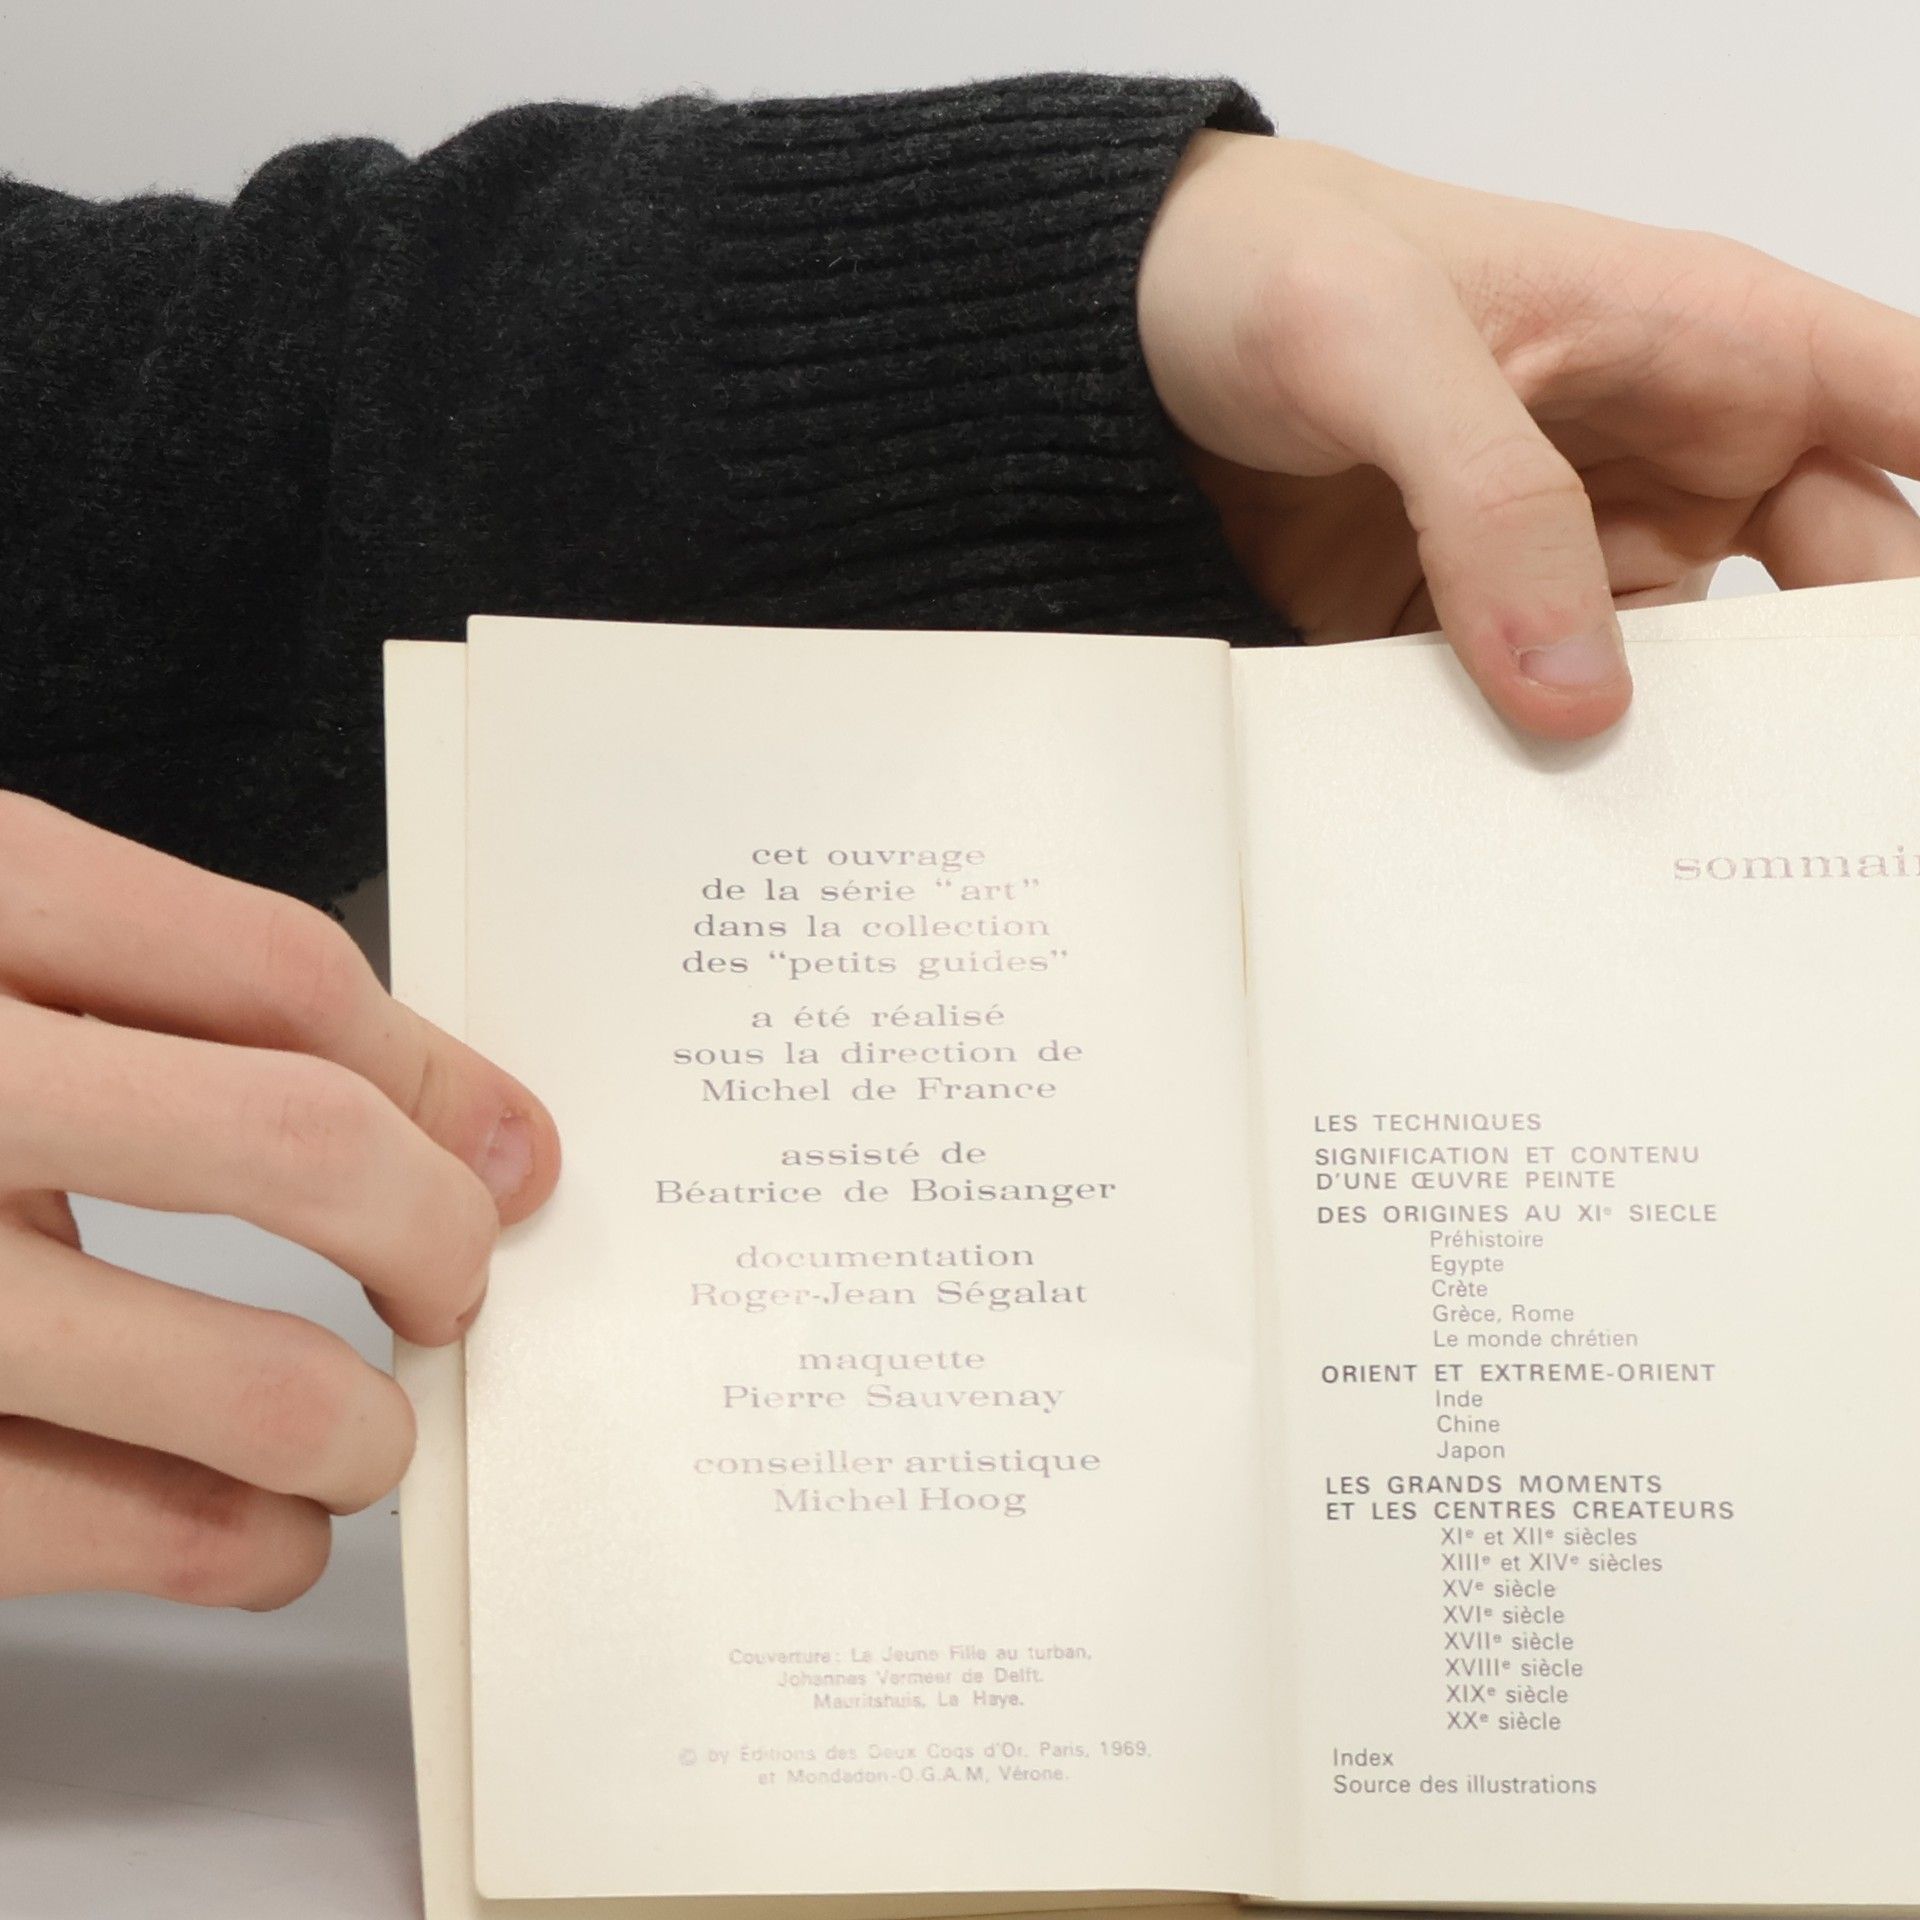 cet ouvrage
de la série “art”
dans la collection
des “petits guides”
a été réalisé
sous la direction de
Michel de France
assisté de
Béatrice de Boisanger
documentation
Roger-Jean Ségalat
maquette
Pierre Sauvenay
conseiller artistique
Michel Hoog
Couverture : La Jeune Fille au turban,
Johannes Vermeer de Delft.
Mauritshuis, La Haye.
© by Éditions des Deux Coqs d'Or, Paris, 1969,
et Mondadori-O.G.A.M, Vérone.
sommair
LES TECHNIQUES
SIGNIFICATION ET CONTENU
D'UNE ŒUVRE PEINTE
DES ORIGINES AU XIᵉ SIECLE
Préhistoire
Egypte
Crète
Grèce, Rome
Le monde chrétien
ORIENT ET EXTREME-ORIENT
Inde
Chine
Japon
LES GRANDS MOMENTS
ET LES CENTRES CREATEURS
XIᵉ et XIIᵉ siècles
XIIIᵉ et XIVᵉ siècles
XVᵉ siècle
XVIᵉ siècle
XVIIᵉ siècle
XVIIIᵉ siècle
XIXᵉ siècle
XXᵉ siècle
Index
Source des illustrations